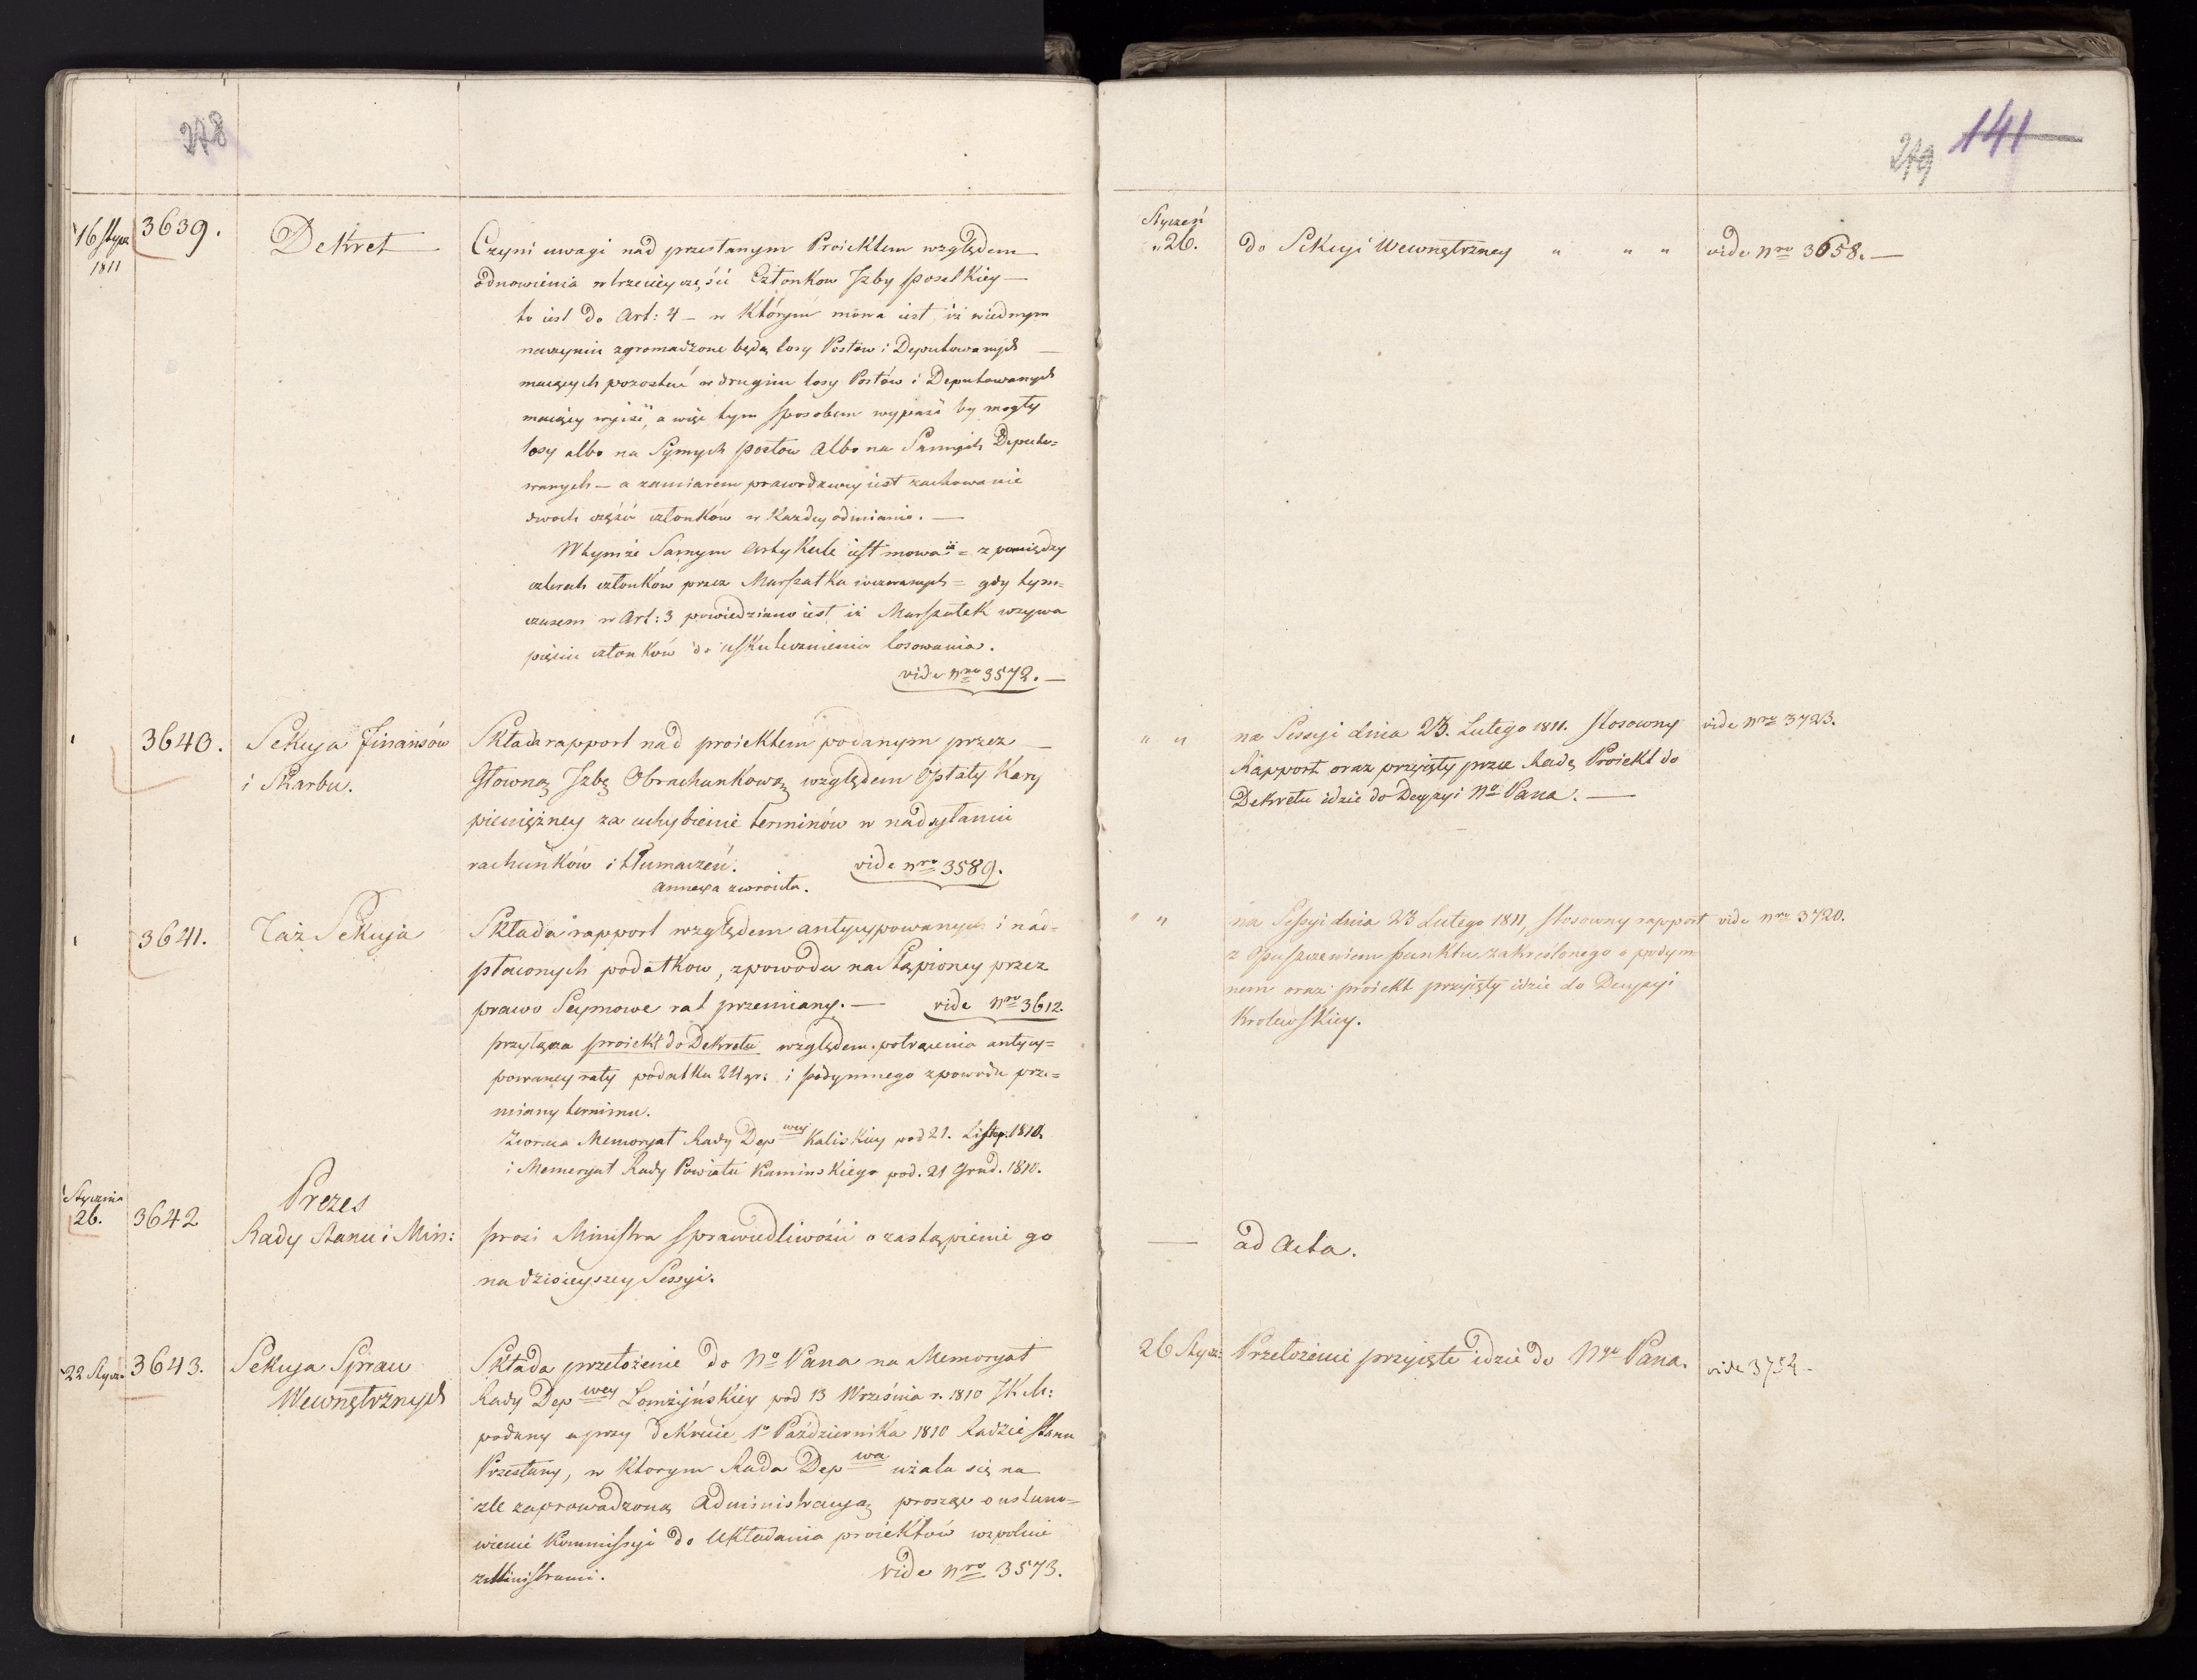 278
16 Stycz
1811
3639.
Dekret
Czyni uwagi nad przesłanym Proiektem względem
odnowienia w trzeciey części Członkow Jzby poselskiey —
to iest do Art: 4 — w którym mowa iest, iż w iednym
naczyniu zgromadzone będą losy Posłow i Deputowanych —
maiących pozostać w drugim losy Posłów i Deputowanych
maiący wyiść, a więc tym sposobem wypaść by mogły
losy albo na Samych posłow albo na Samych Deputo=
wanych — a zamiarem prawodawcy iest zachowanie
dwoch części członków w Każdey odmianie. —
W tymże Samym Artykule iest mowa iż = z pomiędzy
czterech członków przez Marszałka wezwanych = gdy tym=
czasem w Art: 3 powiedziano iest iż Marszałek wzywa
pięciu członków do uskutecznienia losowania.
vide Nro 3572. —
3640.
Sekcya Finansów
i Skarbu.
Składa rapport nad proiektem podanym przez —
Głowną Jzbę Obrachunkową względem Opłaty Kary
pieniężney za uchybienie terminów w nadsyłaniu
rachunków i tłumaczeń. vide nro 3589.
annexa zwrócita.
3641.
Taż Sekcya
Składa rapport względem antycypowanych i nad=
płaconych podatkow, zpowodu nastąpioney przez
prawo Seymowe rat przemiany. — vide Nro 3612.
przyłącza proiekt do Dekretu względem potrącenia antycy=
powaney raty podatku 24 gr: i podymnego zpowodu prze=
miany terminu.
Zwraca Memoryał Rady Dep wey Kaliskiey pod 21. Listop. 1810.
i Memoryał Rady Powiatu Kaminskiego pod. 21 Grud. 1810.
Stycznia
26.
3642
Prezes
Rady Stanu i Min:
prosi Ministra Sprawiedliwości o zastąpienie go
na dzisieyszey Sessyi.
22 Stycz:
3643.
Sekcya Spraw
Wewnętrznych
Składa przełożenie do No Pana na Memoryał
Rady Dep wey Łomżyńskiey pod 13 Września r. 1810 JKM:
podany a przy dekrecie 1o Października 1810 Radzie Stanu
Przesłany, w ktorym Rada Dep wa użala się na
zle zaprowadzoną Administracyą prosząc o ustano=
wienie Kommissyi do Układania proiektów wspolnie
z Ministrami. vide Nro 3573.
141
279
Styczeń
" 26.
do Sekcyi Wewnętrzney " " "
vide Nro 3658. —
" "
na Sessyi dnia 23. Lutego 1811. stosowny
Rapport oraz przyięty przez Radę Proiekt do
Dekretu idzie do Decyzyi No Pana. —
vide Nro 3723.
" "
na Sessyi dnia 23 Lutego 1811, stosowny rapport
z Opuszczeniem punktu zakreślonego o podym=
nem oraz proiekt przyięty idzie do Decyzyi
Krolewskiey.
vide nro 3720.
—
ad Acta.
26 Stycz:
Przełożenie przyięte idzie do Ngo Pana.
vide 3754 —